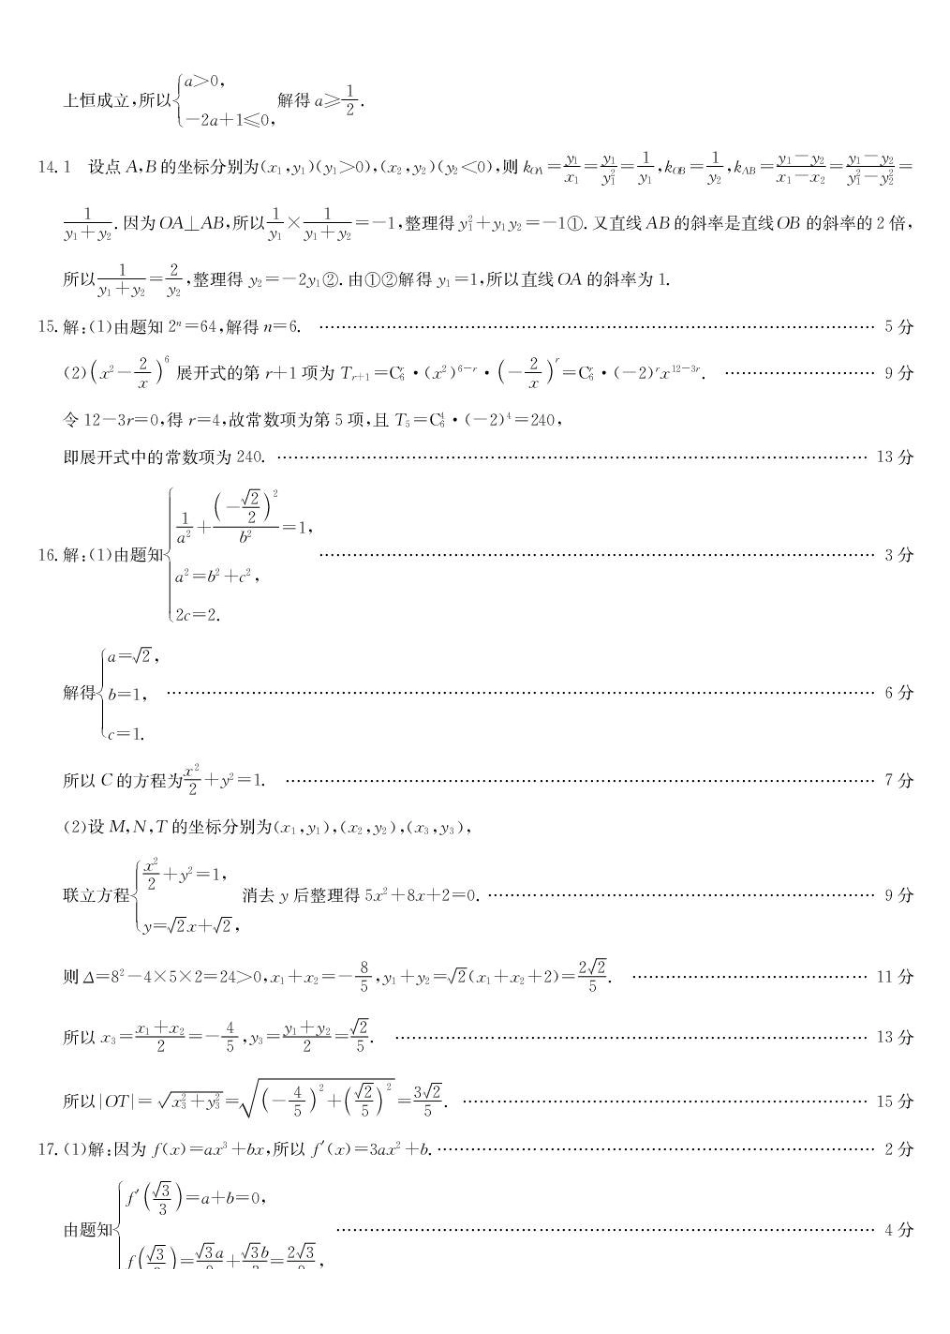 上恒成立,所以{a>0, -2a+1≤0, 解得 a≥1/2.
14. 1 设点 A,B 的坐标分别为(x₁,y₁)(y₁>0),(x₂,y₂)(y₂<0),则 k_OA=y₁/x₁=y₁/y₁²=1/y₁,k_OB=1/y₂,k_AB=(y₁-y₂)/(x₁-x₂)=(y₁-y₂)/(y₁²-y₂²)=
1/(y₁+y₂).因为 OA⊥AB,所以1/y₁×1/(y₁+y₂)=-1,整理得 y₁²+y₁y₂=-1①.又直线 AB 的斜率是直线 OB 的斜率的 2 倍,
所以1/(y₁+y₂)=2/y₂,整理得 y₂=-2y₁②.由①②解得 y₁=1,所以直线 OA 的斜率为 1.
15. 解:(1)由题知 2ⁿ=64,解得 n=6. …… 5 分
(2)(x²-2/x)⁶ 展开式的第 r+1 项为 T_{r+1}=C₆ʳ·(x²)^{6-r}·(-2/x)^r=C₆ʳ·(-2)^r x^{12-3r}. …… 9 分
令 12-3r=0,得 r=4,故常数项为第 5 项,且 T₅=C₆⁴·(-2)⁴=240,
即展开式中的常数项为 240. …… 13 分
16. 解:(1)由题知{1/a²+(-√2/2)²/b²=1, a²=b²+c², 2c=2. …… 3 分
解得{a=√2, b=1, c=1. …… 6 分
所以 C 的方程为x²/2+y²=1. …… 7 分
(2)设 M,N,T 的坐标分别为(x₁,y₁),(x₂,y₂),(x₃,y₃),
联立方程{x²/2+y²=1, y=√2x+√2, 消去 y 后整理得 5x²+8x+2=0. …… 9 分
则 Δ=8²-4×5×2=24>0,x₁+x₂=-8/5,y₁+y₂=√2(x₁+x₂+2)=2√2/5. …… 11 分
所以 x₃=(x₁+x₂)/2=-4/5,y₃=(y₁+y₂)/2=√2/5. …… 13 分
所以|OT|=√(x₃²+y₃²)=√((-4/5)²+(√2/5)²)=3√2/5. …… 15 分
17. (1)解:因为 f(x)=ax³+bx,所以 f′(x)=3ax²+b. …… 2 分
由题知{f′(√3/3)=a+b=0, …… 4 分